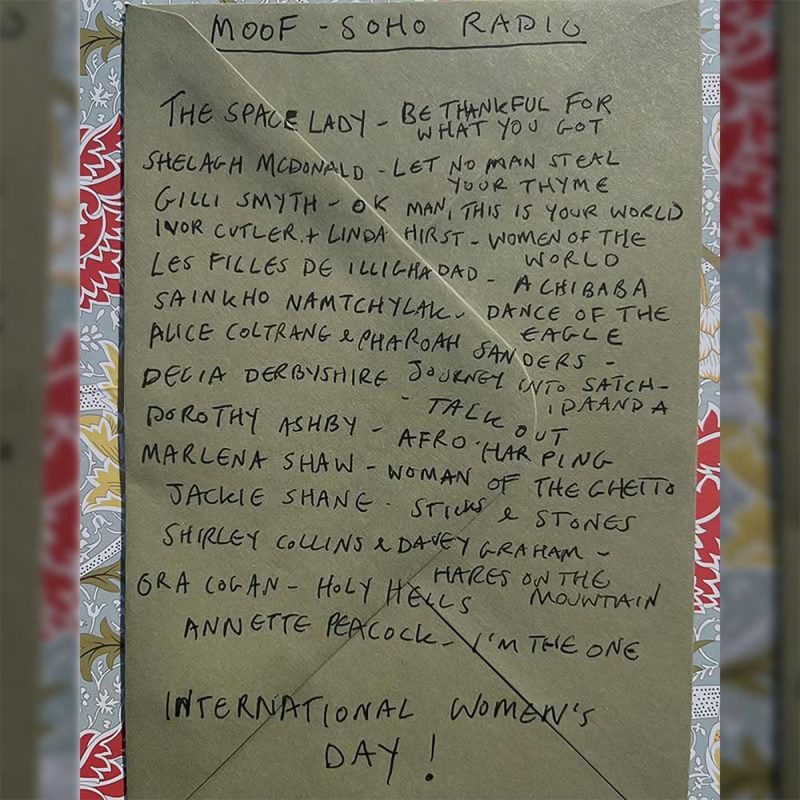 MOOF - SOHO RADIO
THE SPACE LADY - BE THANKFUL FOR
WHAT YOU GOT
SHELAGH MCDONALD - LET NO MAN STEAL
YOUR THYME
GILLI SMYTH - OK MAN, THIS IS YOUR WORLD
IVOR CUTLER. + LINDA HIRST - WOMEN OF THE
WORLD
LES FILLES DE ILLIGHADAD - ACHIBABA
SAINKHO NAMTCHYLAK - DANCE OF THE
EAGLE
ALICE COLTRANE & PHAROAH SANDERS -
JOURNEY INTO SATCH-
IDAANDA
DELIA DERBYSHIRE - TALK OUT
DOROTHY ASHBY - AFRO-HARPING
MARLENA SHAW - WOMAN OF THE GHETTO
JACKIE SHANE - STICKS & STONES
SHIRLEY COLLINS & DAVEY GRAHAM -
HARES ON THE
MOUNTAIN
ORA COGAN - HOLY HELLS
ANNETTE PEACOCK - I'M THE ONE
INTERNATIONAL WOMEN'S
DAY!